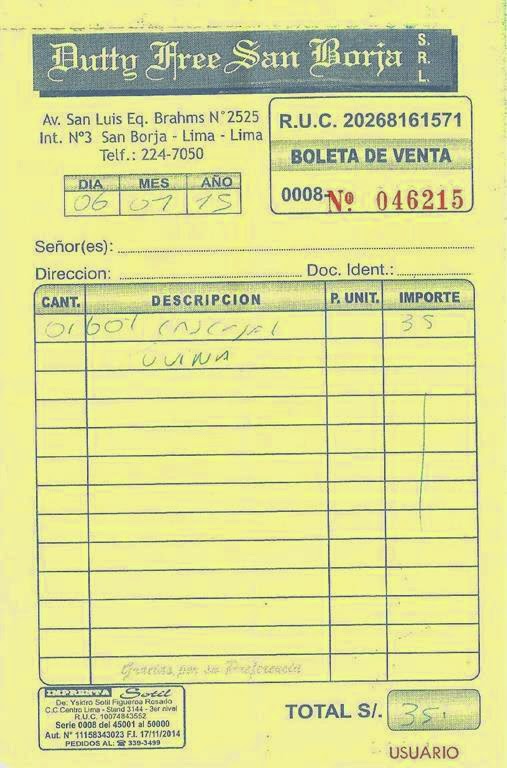 Dutty Free San Borja S.R.L.
Av. San Luis Eq. Brahms N°2525
Int. Nº3 San Borja - Lima - Lima
Telf.: 224-7050
R.U.C. 20268161571
BOLETA DE VENTA
0008- Nº 046215
DIA MES AÑO
06 01 15
Señor(es):
Direccion: Doc. Ident.:
CANT. DESCRIPCION P. UNIT. IMPORTE
01 bot 35
Gracias por su Preferencia
IMPRENTA Sotil
De: Ysidro Sotil Figueroa Rosario
C.C Centro Lima - Stand 3144 - 3er nivel
R.U.C. 10074843552
Serie 0008 del 45001 al 50000
Aut. N° 11158343023 F.I. 17/11/2014
PEDIDOS AL: ☎ 339-3499
TOTAL S/. 35
USUARIO